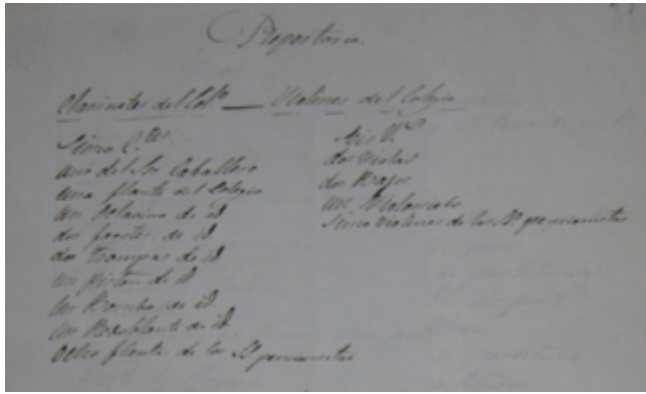 Repertorio.
Clarinetes del Colo — Violines del Colegio
Sinco C.tes
uno del Sor Caballero
una flauta del Colegio
un octavino de id.
dos de id.
dos trompas de id.
un piston de id
un Bombo de id.
un Redoblante de id
Ocho flautas de los Ss pencionistas
Seis V.s
dos violas
dos Bajos
un Violonselo
Sinco violines de los Ss pencionistas